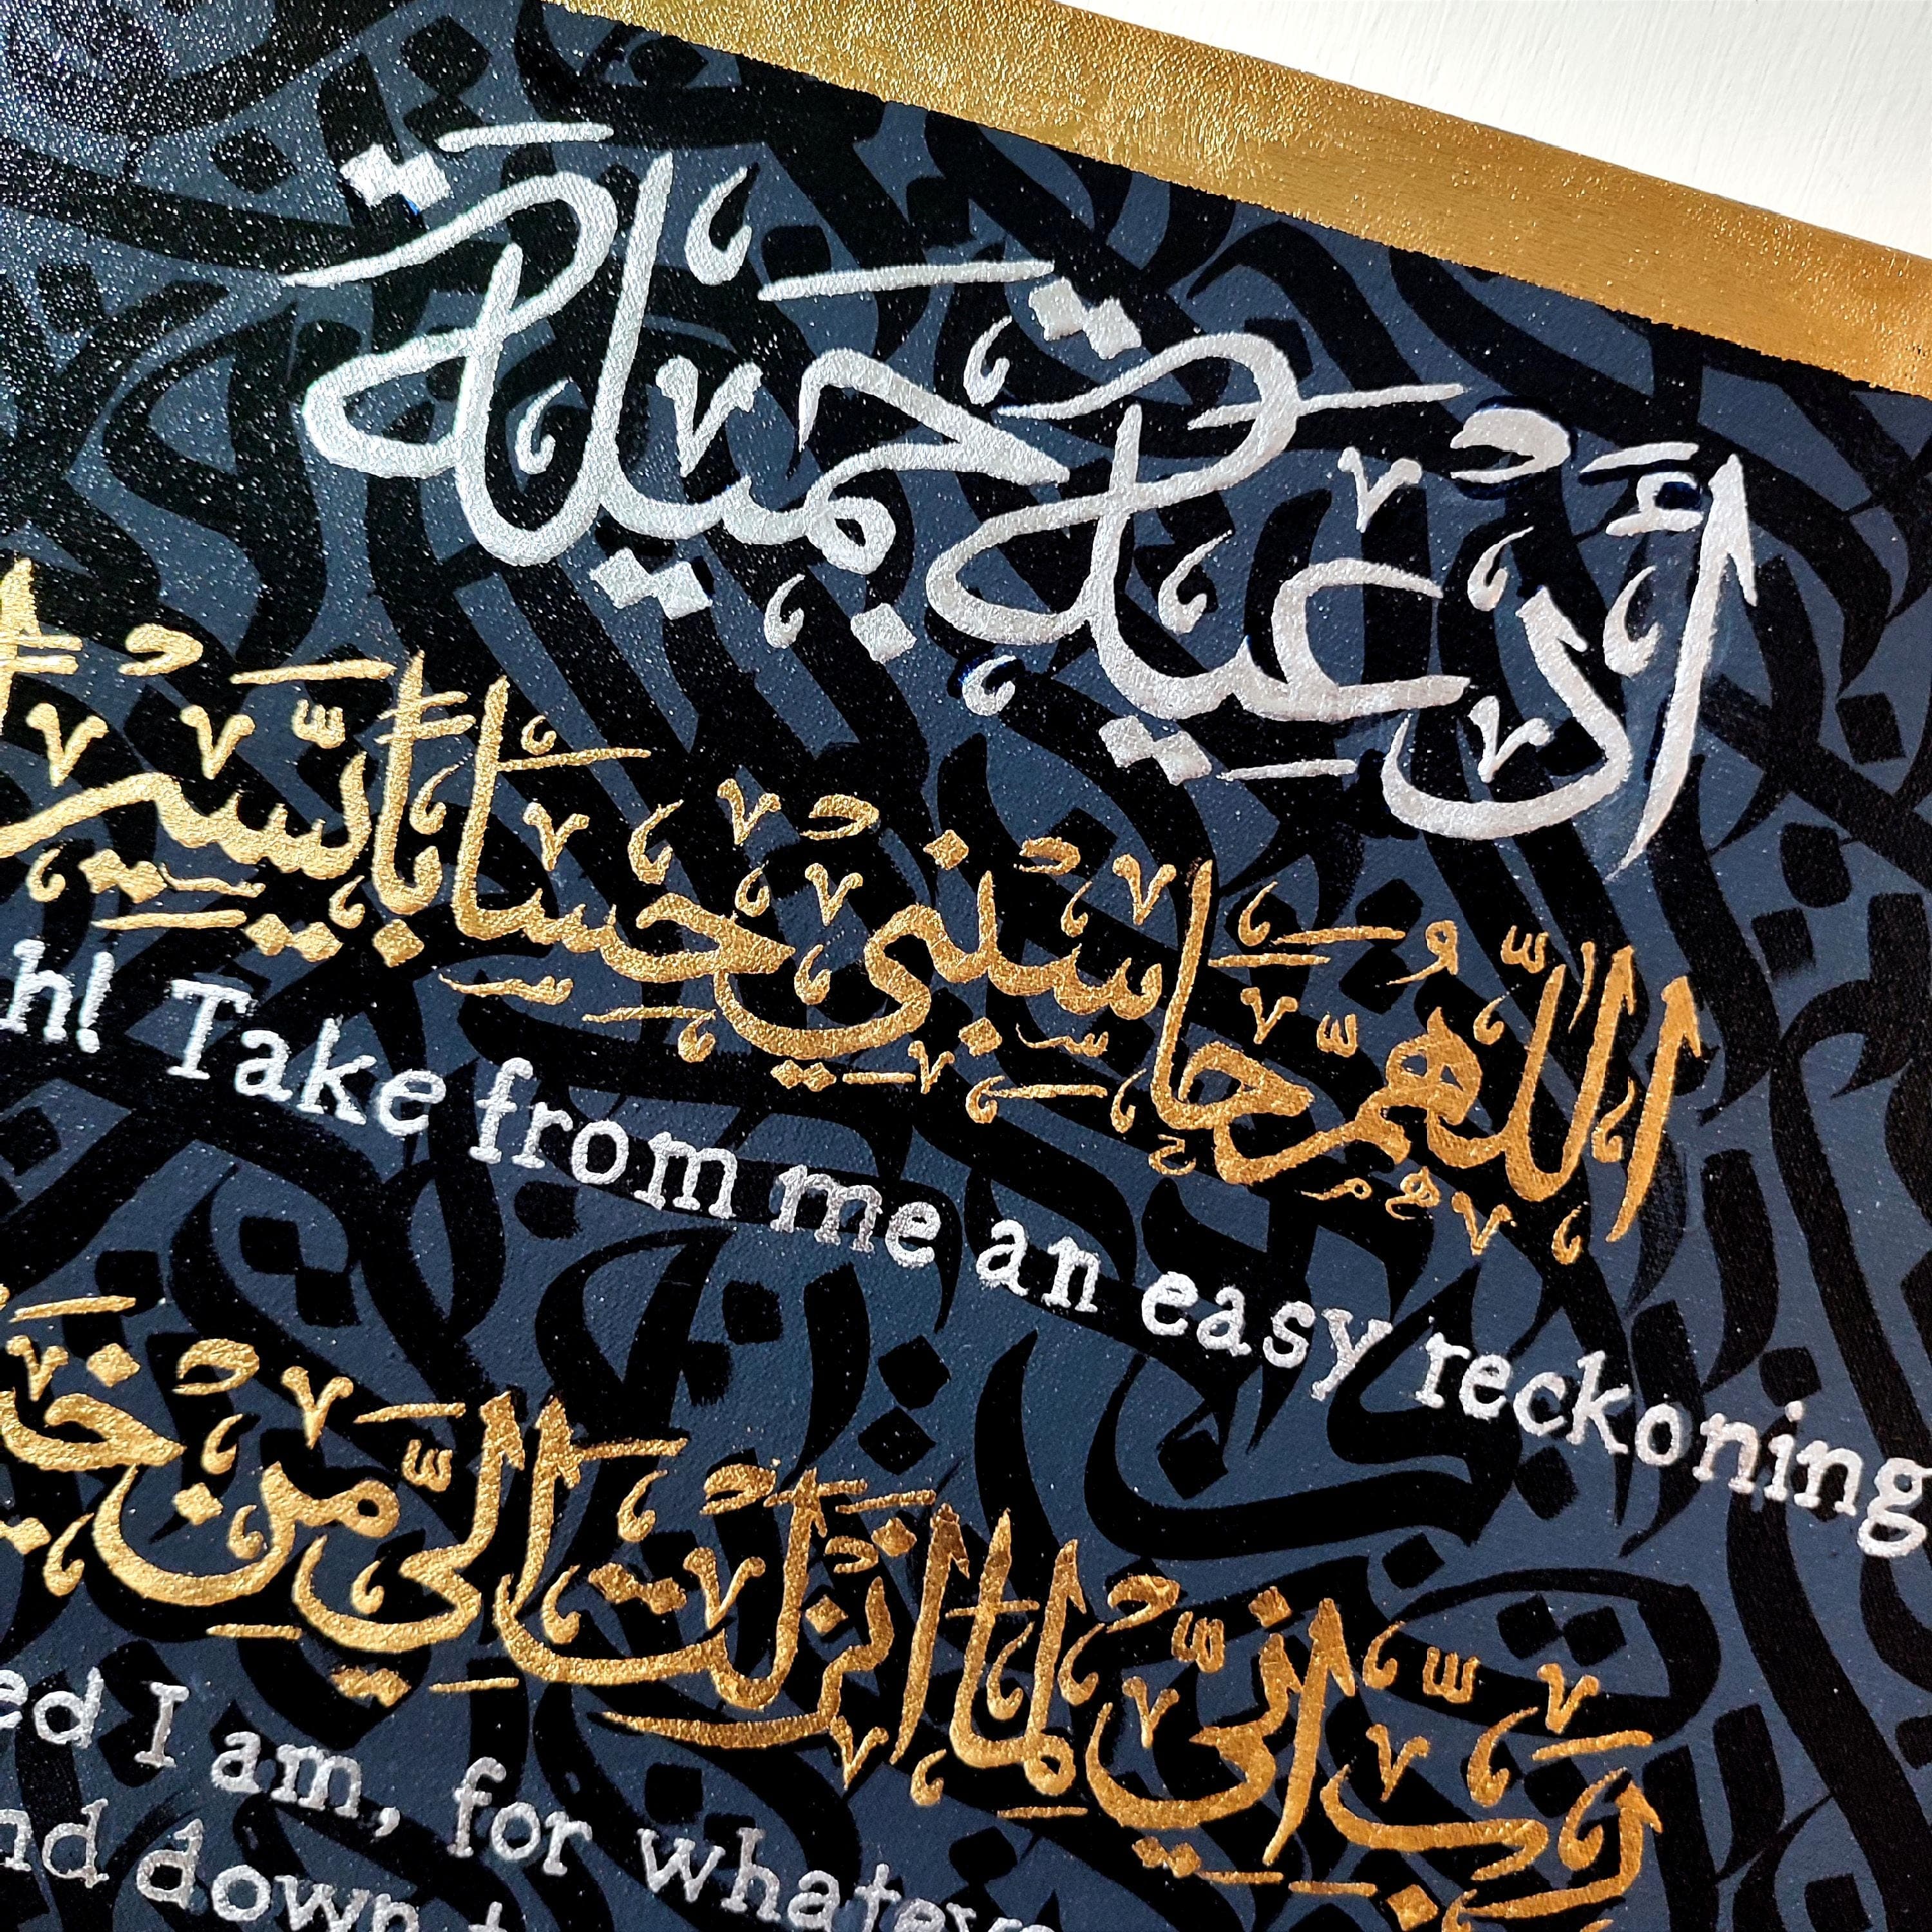 أَدْعِيَة جَمِيلَة
اَللّٰهُمَّ حَاسِبْنِي حِسَابًا يَسِيرًا
h! Take from me an easy reckoning
رَبِّ إِنِّي لِمَا أَنْزَلْتَ إِلَيَّ مِنْ
ed I am, for whateve
nd down t